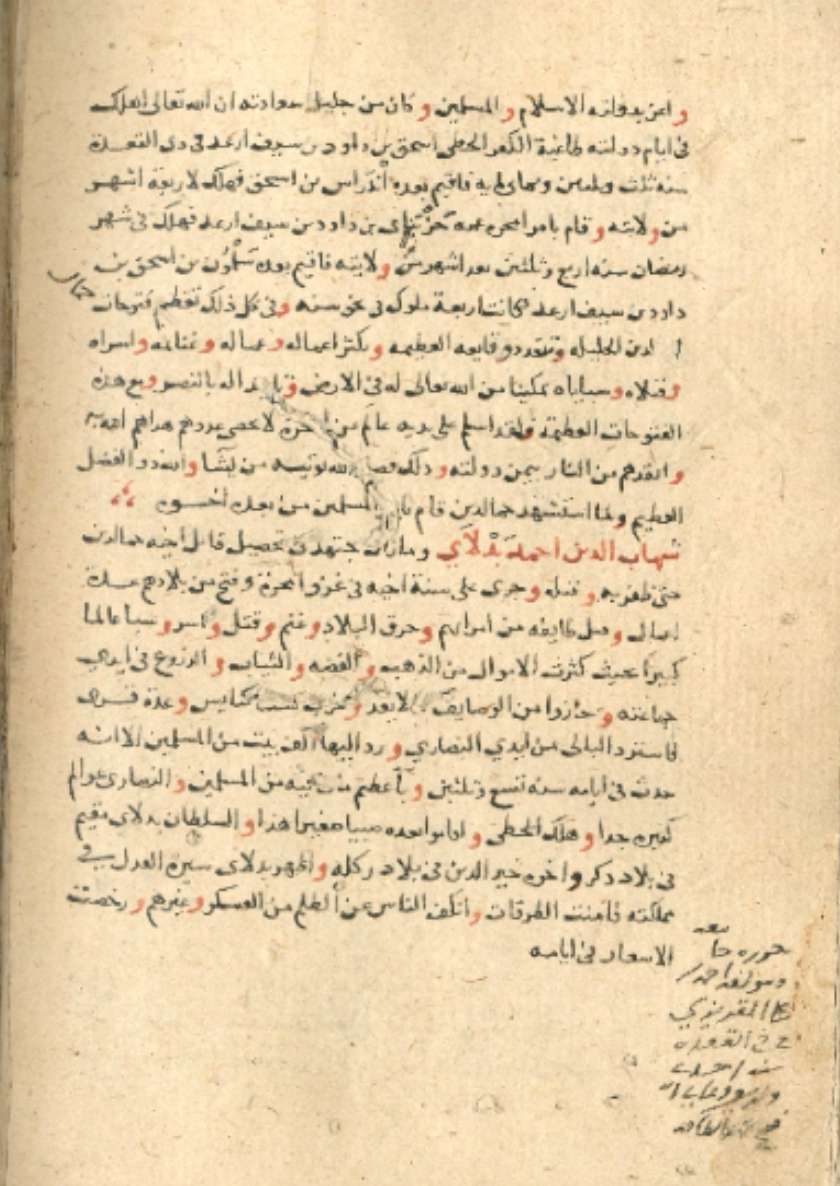 واعز بدولته الاسلام والمسلمين وكان من جليل سعادته ان الله تعالى اهلك
فى ايام دولته طاغية الكفر الحطى اسحق بن داود بن سيف ارعد فى ذى القعدة
سنه ثلث وثلثين وثماى مايه فاقيم بعده أندراس بن اسحق فهلك لاربعة اشهر
من ولايته وقام بامر امحره عمه حزبناى بن داود بن سيف ارعد فهلك فى شهر
رمضان سنه اربع وثلثين بعد اشهر من ولايته فاقيم بعده سَلْمُون بن اسحق بن
داود بن سيف ارعد فكانت اربعة ملوك فى نحو سنه وفى كل ذلك تعظم فتوحات جمال
الدين الجليله وتتعدد وقايعه العظيمه وتكثر اعماله وعساله وغنايمه واسراه
وقتلاه وسباياه تمكينا من الله تعالى له فى الارض وتاييدا له بالنصر ومع هذه
الفتوحات العظيمة فلقد اسلم على يديه عالم من امحرة لا يحصى عددهم هداهم الله به
وانقدهم من النار بيمن دولته وذلك فضل الله يوتيه من يشا والله ذو الفضل
العظيم ولما استشهد جمال الدين قام بامر المسلمين من بعده اخوه
شهاب الدين احمد بَدْلاَي وما زال يجتهد فى تحصيل قاتل اخيه جمال الدين
حتى ظفر به وقتله وجرى على سنة اخيه فى غزو امحرة وفتح من بلادهم عدة
اعمال وقتل طايفه من امرايهم وحرق البلاد وغنم وقتل واسر وسبا عالما
كبيرا بحيث كثرت الاموال من الذهب والفضه والثياب والدروع فى ايدى
جماعته وحازوا من الوصايف ما لا يعد وخرب ست كنايس وعدة قرى
فاسترد البالى من ايدي النصاري ورد اليها الف بيت من المسلمين الا انه
حدث فى ايامه سنه تسع وثلثين وبأ عظيم مات فيه من المسلمين والنصارى عوالم
كثيره جدا وهلك الحطى واقاموا بعده صبيا صغيرا هذا والسلطان بدلاى مقيم
فى بلاد دكر واخوه خير الدين فى بلاد ركله واظهر بدلاى سيره العدل فى
مملكته فامنت الطرقات وانكف الناس عن الظلم من العسكر وغيرهم ورخصت
الاسعار فى ايامه
حرره جامعه
ومولفه احمد بن
على المقريزي
فى ذى القعده
سنه احدى